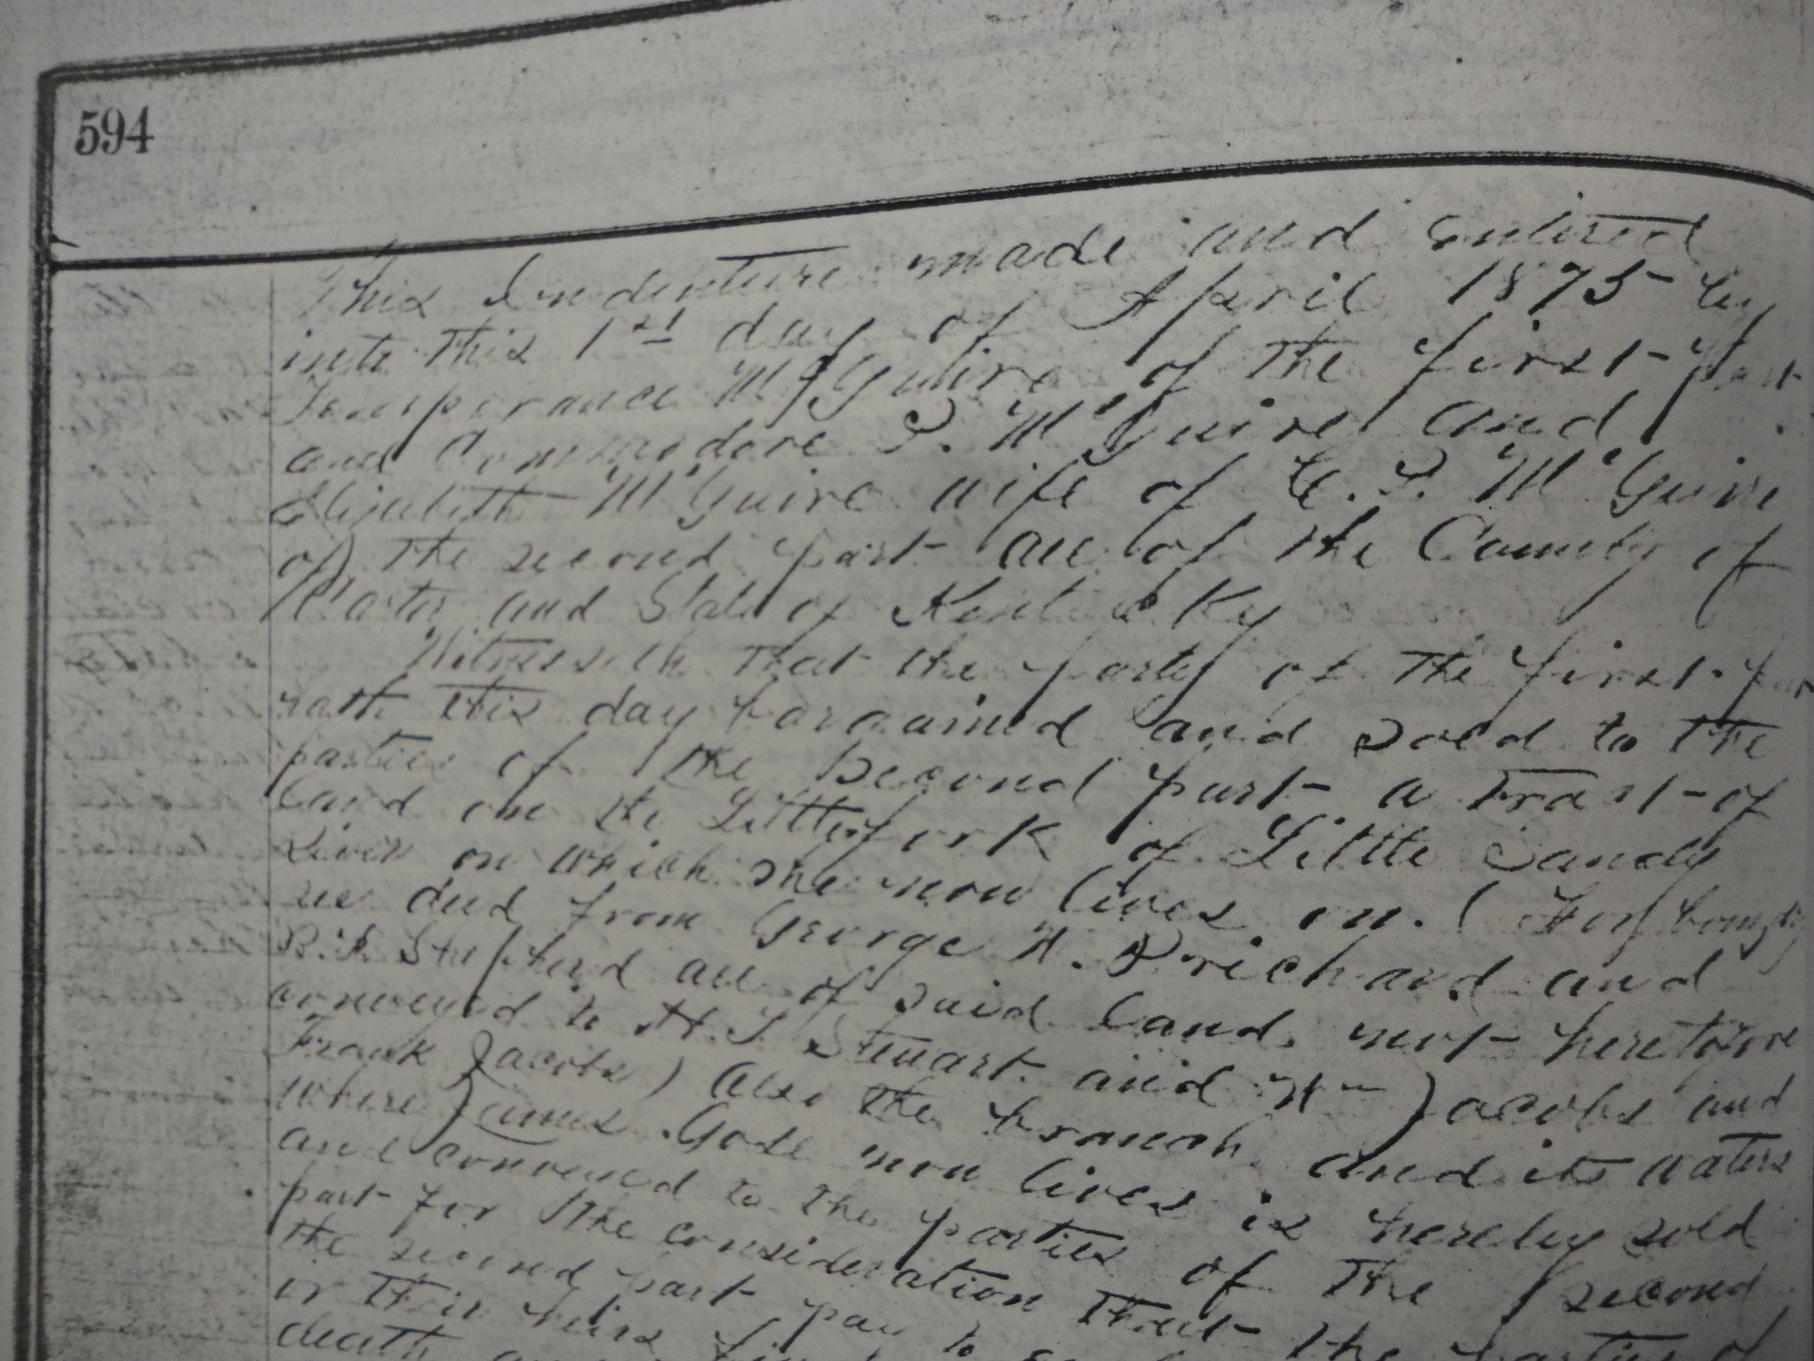 594
This Indenture made and entired
into this 1st day of April 1875 by
Temperance McGuire of the first part
and Commodore P. McGuire and
Elizabeth McGuire wife of C. P. McGuire
of the second part all of the County of
Carter and State of Kentucky
Witnesseth that the party of the first
hath this day bargained and sold to the
parties of the Second part a tract of
land on the Little fork of Little Sandy
River on which she now lives on. (For
see deed from George W. Prichard and
Shepherd all of said land not heretofore
conveyed to H. Stewart and Wm Jacobs and
Frank Jacobs) Also the branch and its waters
where James now lives is hereby sold
and conveyed to the parties of the second
part for the consideration that the parties of
the second part pay to
or their heirs
death